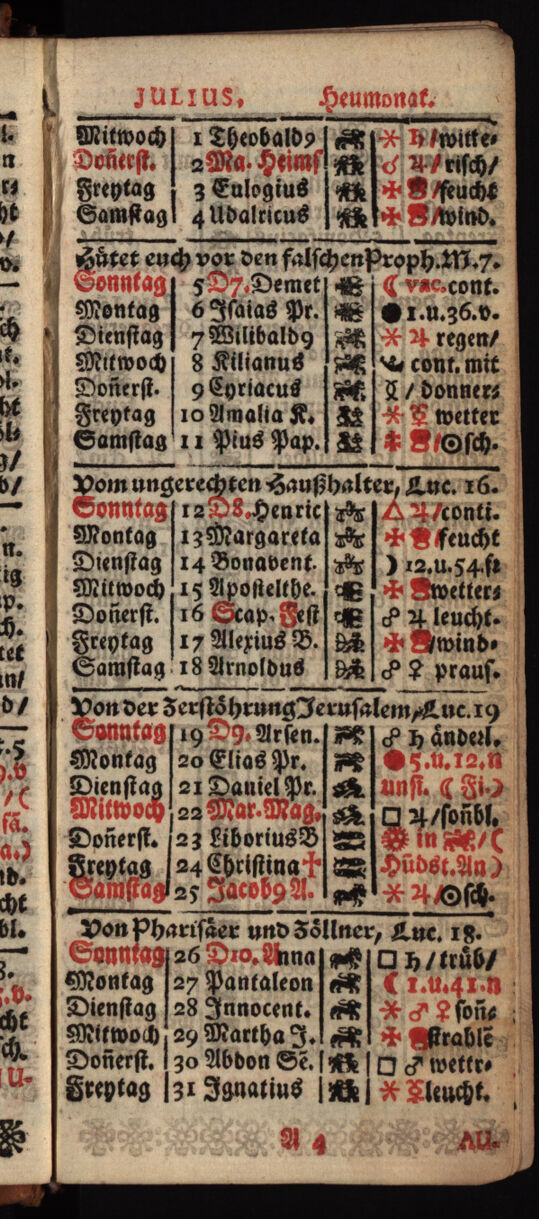 JULIUS. Heumonat.
Mitwoch 1 Theobald9 ⚹ ♄ /witte⸗
Doñerst. 2 Ma. Heims ☌ ♃ / risch/
Freytag 3 Eulogius /feucht
Samstag 4 Udalricus /wind.
Hütet euch vor den falschen Proph. M. 7.
Sonntag 5 D7. Demet ☾ vac. cont.
Montag 6 Isaias Pr. ● 1. u. 36. v.
Dienstag 7 Wilibald9 ⚹ ♃ regen/
Mitwoch 8 Kilianus cont. mit
Doñerst. 9 Cyriacus ☿ / donner⸗
Freytag 10 Amalia K. ⚹ ☿ wetter
Samstag 11 Pius Pap. /☉sch.
Vom ungerechten Haußhalter, Luc. 16.
Sonntag 12 D8. Henric △ ♃/conti.
Montag 13 Margareta /feucht
Dienstag 14 Bonavent. ☽ 12. u. 54. f⸗
Mitwoch 15 Apostelthe. wetter⸗
Doñerst. 16 Scap. Fest ☍ ♃ leucht.
Freytag 17 Alexius B. /wind⸗
Samstag 18 Arnoldus ☍ ♀ praus.
Von der Zerstöhrung Jerusalem, Luc. 19
Sonntag 19 D9. Arsen. ☍ ♄ änderl.
Montag 20 Elias Pr. 5. u. 12. n
Dienstag 21 Daniel Pr. unst. ☾ Fi.)
Mitwoch 22 Mar. Mag. □ ♃/soñbl.
Doñerst. 23 Liborius B in /(
Freytag 24 Christina ✝ Hündst. An)
Samstag 25 Jacob9 A. ⚹ ♃/☉sch.
Von Pharisäer und Zöllner, Luc. 18.
Sonntag 26 D10. Anna □ ♄ / trüb/
Montag 27 Pantaleon ☾ 1. u. 41. n
Dienstag 28 Innocent. ⚹ ♂ ♀ soñ⸗
Mitwoch 29 Martha J. strablẽ
Doñerst. 30 Abdon Sẽ. □ ♂ wettr⸗
Freytag 31 Ignatius ⚹ ☿ leucht.
A 4 AU-